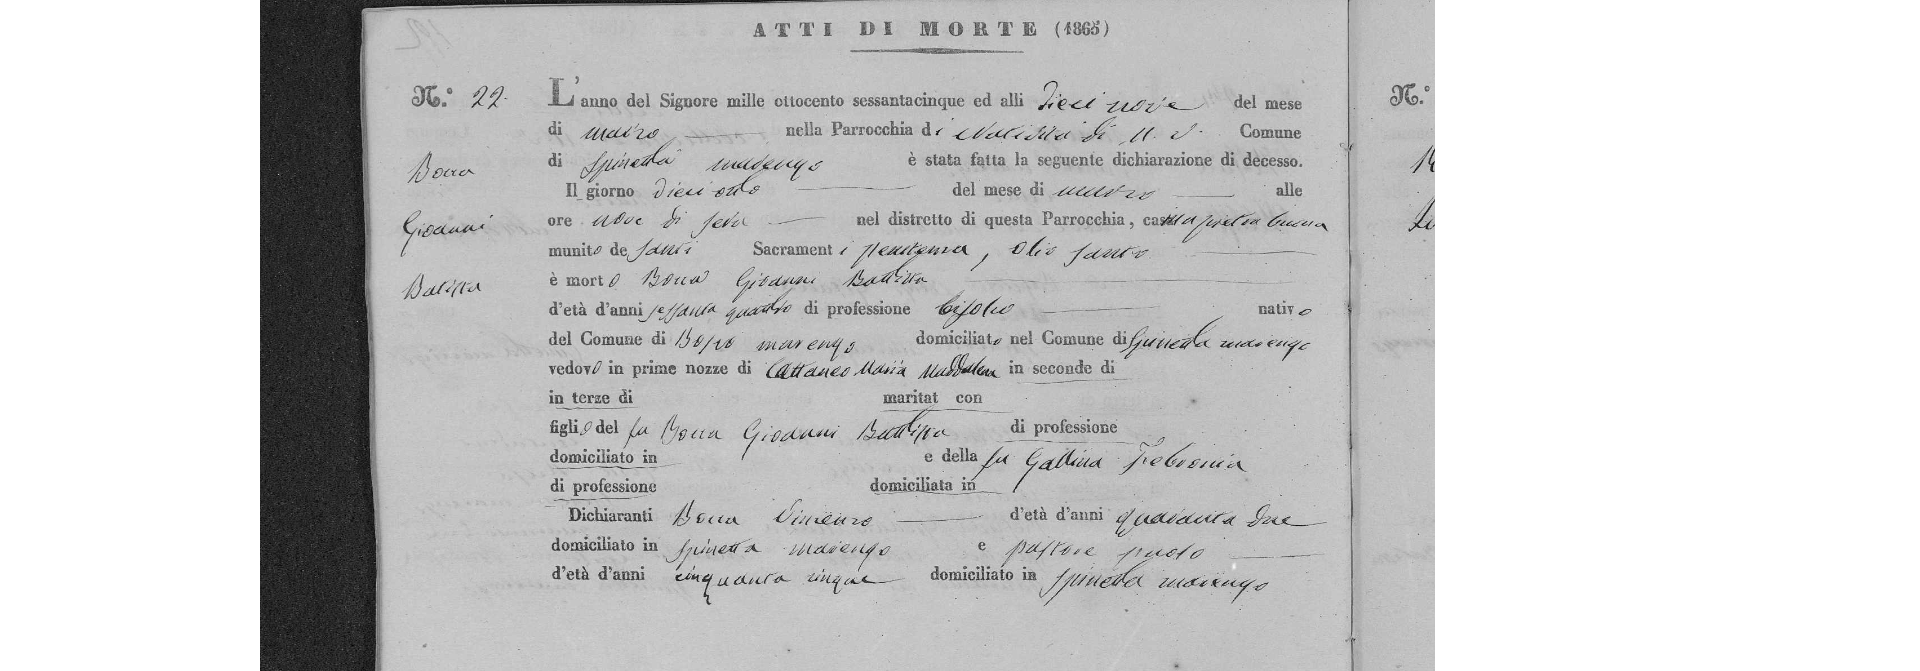 ATTI DI MORTE (1865)
N.° 22. L'anno del Signore mille ottocento sessantacinque ed alli dieci nove del mese
di marzo nella Parrocchia di Natività di N. S. Comune
di Spinetta marengo è stata fatta la seguente dichiarazione di decesso.
Bocca
Il giorno dieci otto del mese di marzo alle
Giovanni
ore nove di sera nel distretto di questa Parrocchia, casa pietra
munito de santi Sacramenti penitenza, olio santo
Batista
è morto Bocca Giovanni Battista
d'età d'anni sessanta quattro di professione bifolco nativo
del Comune di Bosco marengo domiciliato nel Comune di Spinetta marengo
vedovo in prime nozze di Cattaneo Maria Maddalena in seconde di
in terze di maritat con
figlio del fu Bocca Giovanni Battista di professione
domiciliato in e della fu Gallina Febronia
di professione domiciliata in
Dichiaranti Bocca Vincenzo d'età d'anni quaranta due
domiciliato in Spinetta marengo e pastore paolo
d'età d'anni cinquanta cinque domiciliato in Spinetta marengo
N.°